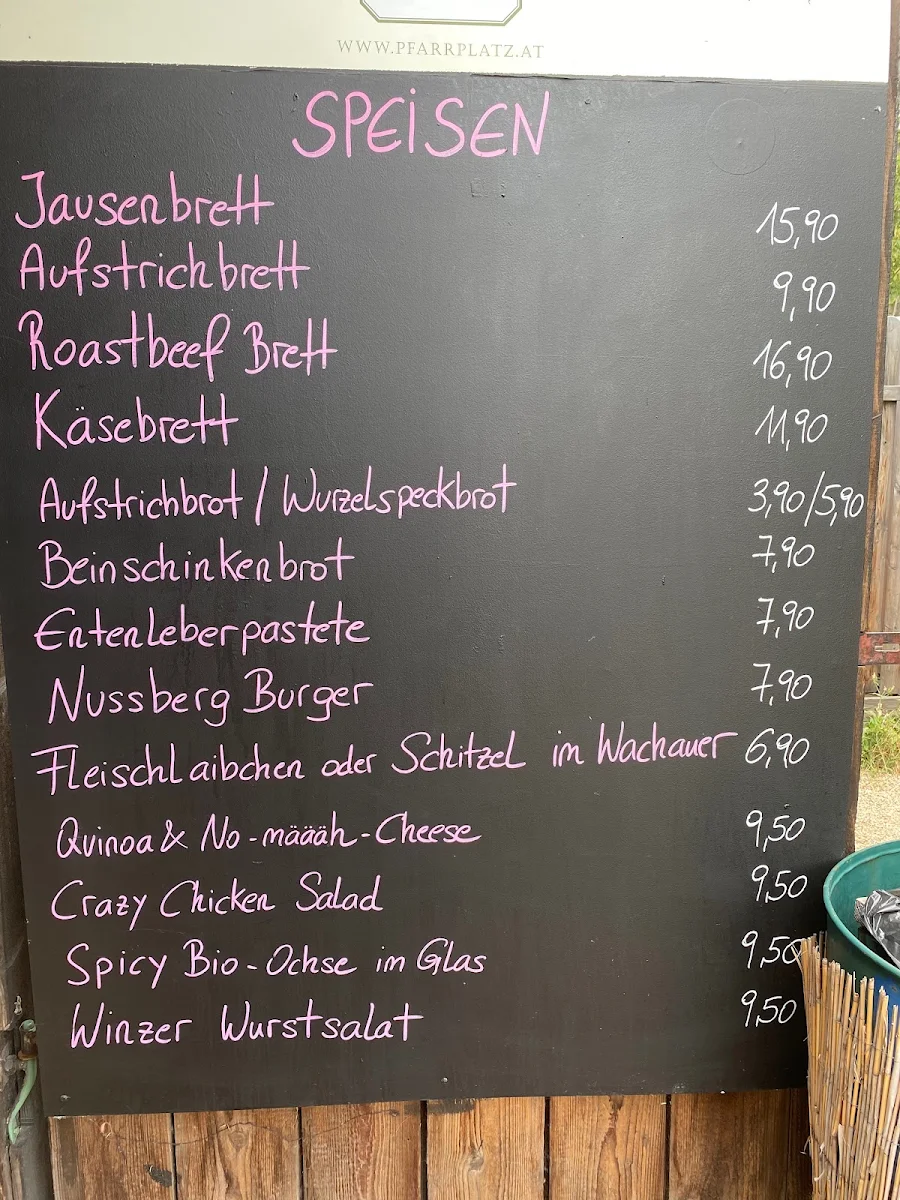 WWW.PFARRPLATZ.AT
SPEiSEN
Jausenbrett 15,90
Aufstrichbrett 9,90
Roastbeef Brett 16,90
Käsebrett 11,90
Aufstrichbrot / Wurzelspeckbrot 3,90/5,90
Beinschinkenbrot 7,90
Entenleberpastete 7,90
Nussberg Burger 7,90
Fleischlaibchen oder Schitzel im Wachauer 6,90
Quinoa & No-määäh-Cheese 9,50
Crazy Chicken Salad 9,50
Spicy Bio-Ochse im Glas 9,50
Winzer Wurstsalat 9,50